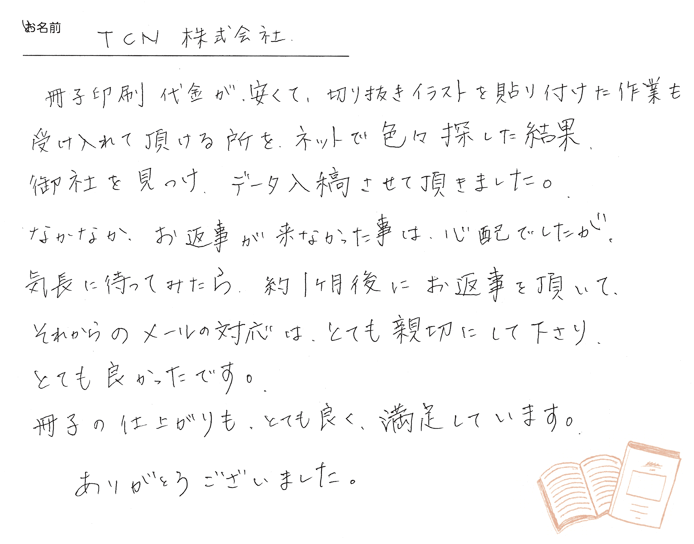 お名前 TCN 株式会社.
冊子印刷代金が、安くて、切り抜きイラストを貼り付けた作業も
受け入れて頂ける所を、ネットで色々探した結果、
御社を見つけ、データ入稿させて頂きました。
なかなか、お返事が来なかった事は、心配でしたが、
気長に待ってみたら、約1ヶ月後にお返事を頂いて、
それからのメールの対応は、とても親切にして下さり、
とても良かったです。
冊子の仕上がりも、とても良く、満足しています。
ありがとうございました。